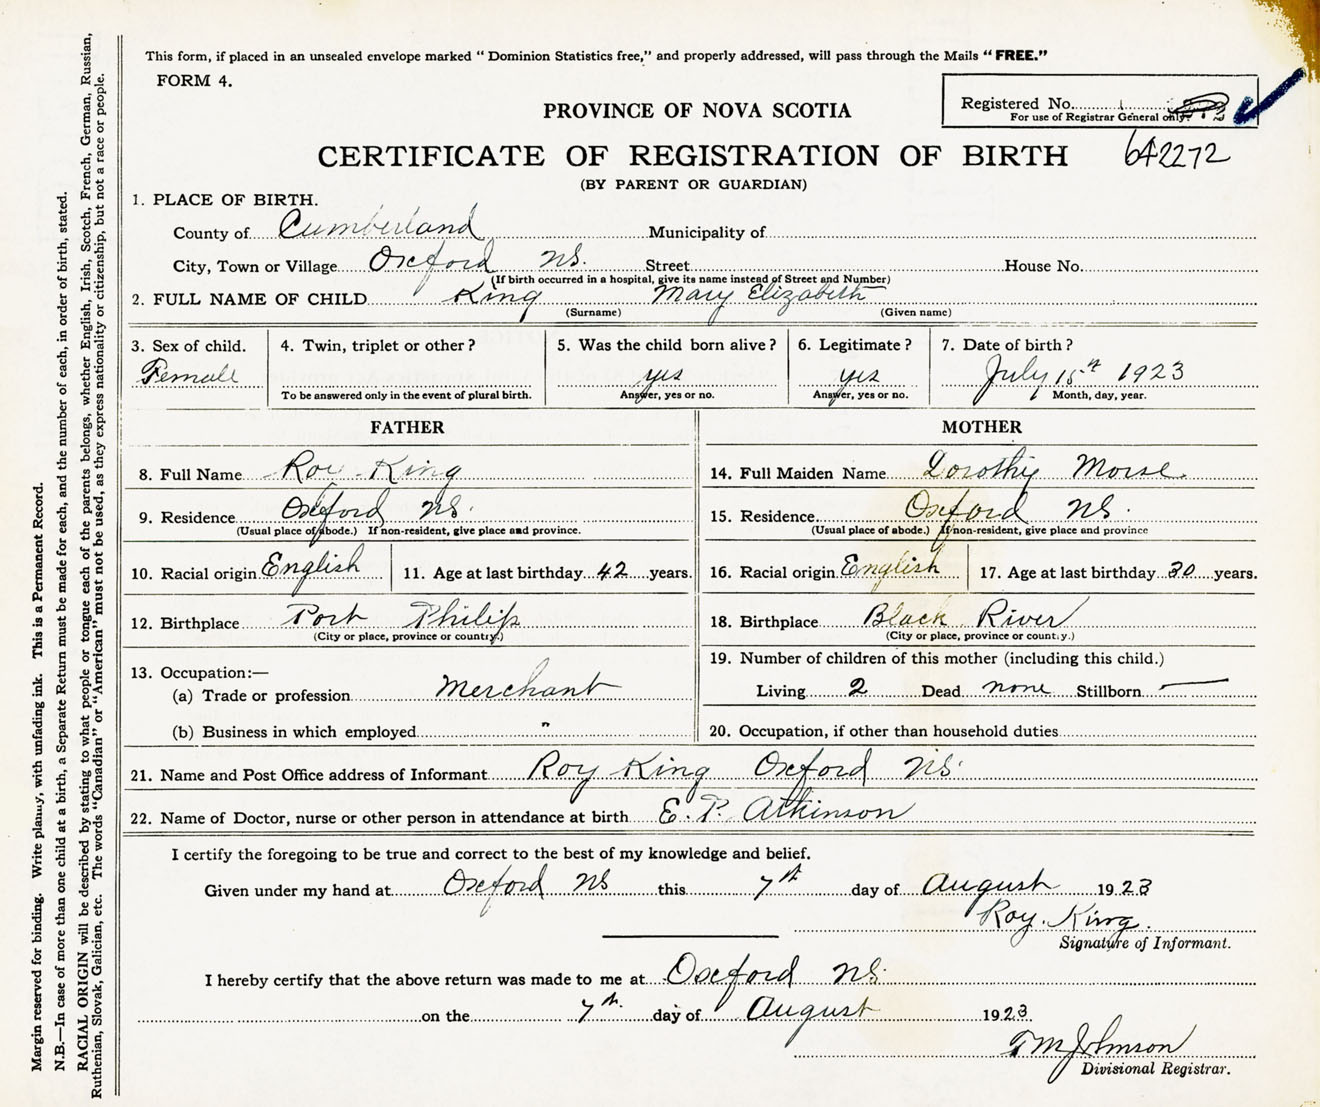 This form, if placed in an unsealed envelope marked “Dominion Statistics free,” and properly addressed, will pass through the Mails “FREE.”
FORM 4.
Registered No.
For use of Registrar General only.
PROVINCE OF NOVA SCOTIA
CERTIFICATE OF REGISTRATION OF BIRTH 642272
(BY PARENT OR GUARDIAN)
1. PLACE OF BIRTH.
County of Cumberland Municipality of
City, Town or Village Oxford NS. Street House No.
(If birth occurred in a hospital, give its name instead of Street and Number)
2. FULL NAME OF CHILD King Mary Elizabeth
(Surname) (Given name)
3. Sex of child. 4. Twin, triplet or other? 5. Was the child born alive? 6. Legitimate? 7. Date of birth?
Female yes yes July 15th 1923
To be answered only in the event of plural birth. Answer, yes or no. Answer, yes or no. Month, day, year.
FATHER MOTHER
8. Full Name Roy King 14. Full Maiden Name Dorothy Morse
9. Residence Oxford NS. 15. Residence Oxford NS.
(Usual place of abode.) If non-resident, give place and province. (Usual place of abode.) If non-resident, give place and province
10. Racial origin English 11. Age at last birthday 42 years. 16. Racial origin English 17. Age at last birthday 30 years.
12. Birthplace Port Philip 18. Birthplace Black River
(City or place, province or country.) (City or place, province or country.)
13. Occupation:— 19. Number of children of this mother (including this child.)
(a) Trade or profession Merchant Living 2 Dead none Stillborn —
(b) Business in which employed " 20. Occupation, if other than household duties
21. Name and Post Office address of Informant Roy King Oxford NS.
22. Name of Doctor, nurse or other person in attendance at birth E. P. Atkinson
I certify the foregoing to be true and correct to the best of my knowledge and belief.
Given under my hand at Oxford NS this 7th day of August 1923
Roy. King.
Signature of Informant.
I hereby certify that the above return was made to me at Oxford NS.
on the 7th. day of August 1923.
T M Johnson
Divisional Registrar.
Margin reserved for binding. Write plainly, with unfading ink. This is a Permanent Record.
N.B.—In case of more than one child at a birth, a Separate Return must be made for each, and the number of each, in order of birth, stated.
RACIAL ORIGIN will be described by stating to what people or tongue each of the parents belongs, whether English, Irish, Scotch, French, German, Russian,
Ruthenian, Slovak, Galician, etc. The words “Canadian” or “American” must not be used, as they express nationality or citizenship, but not a race or people.